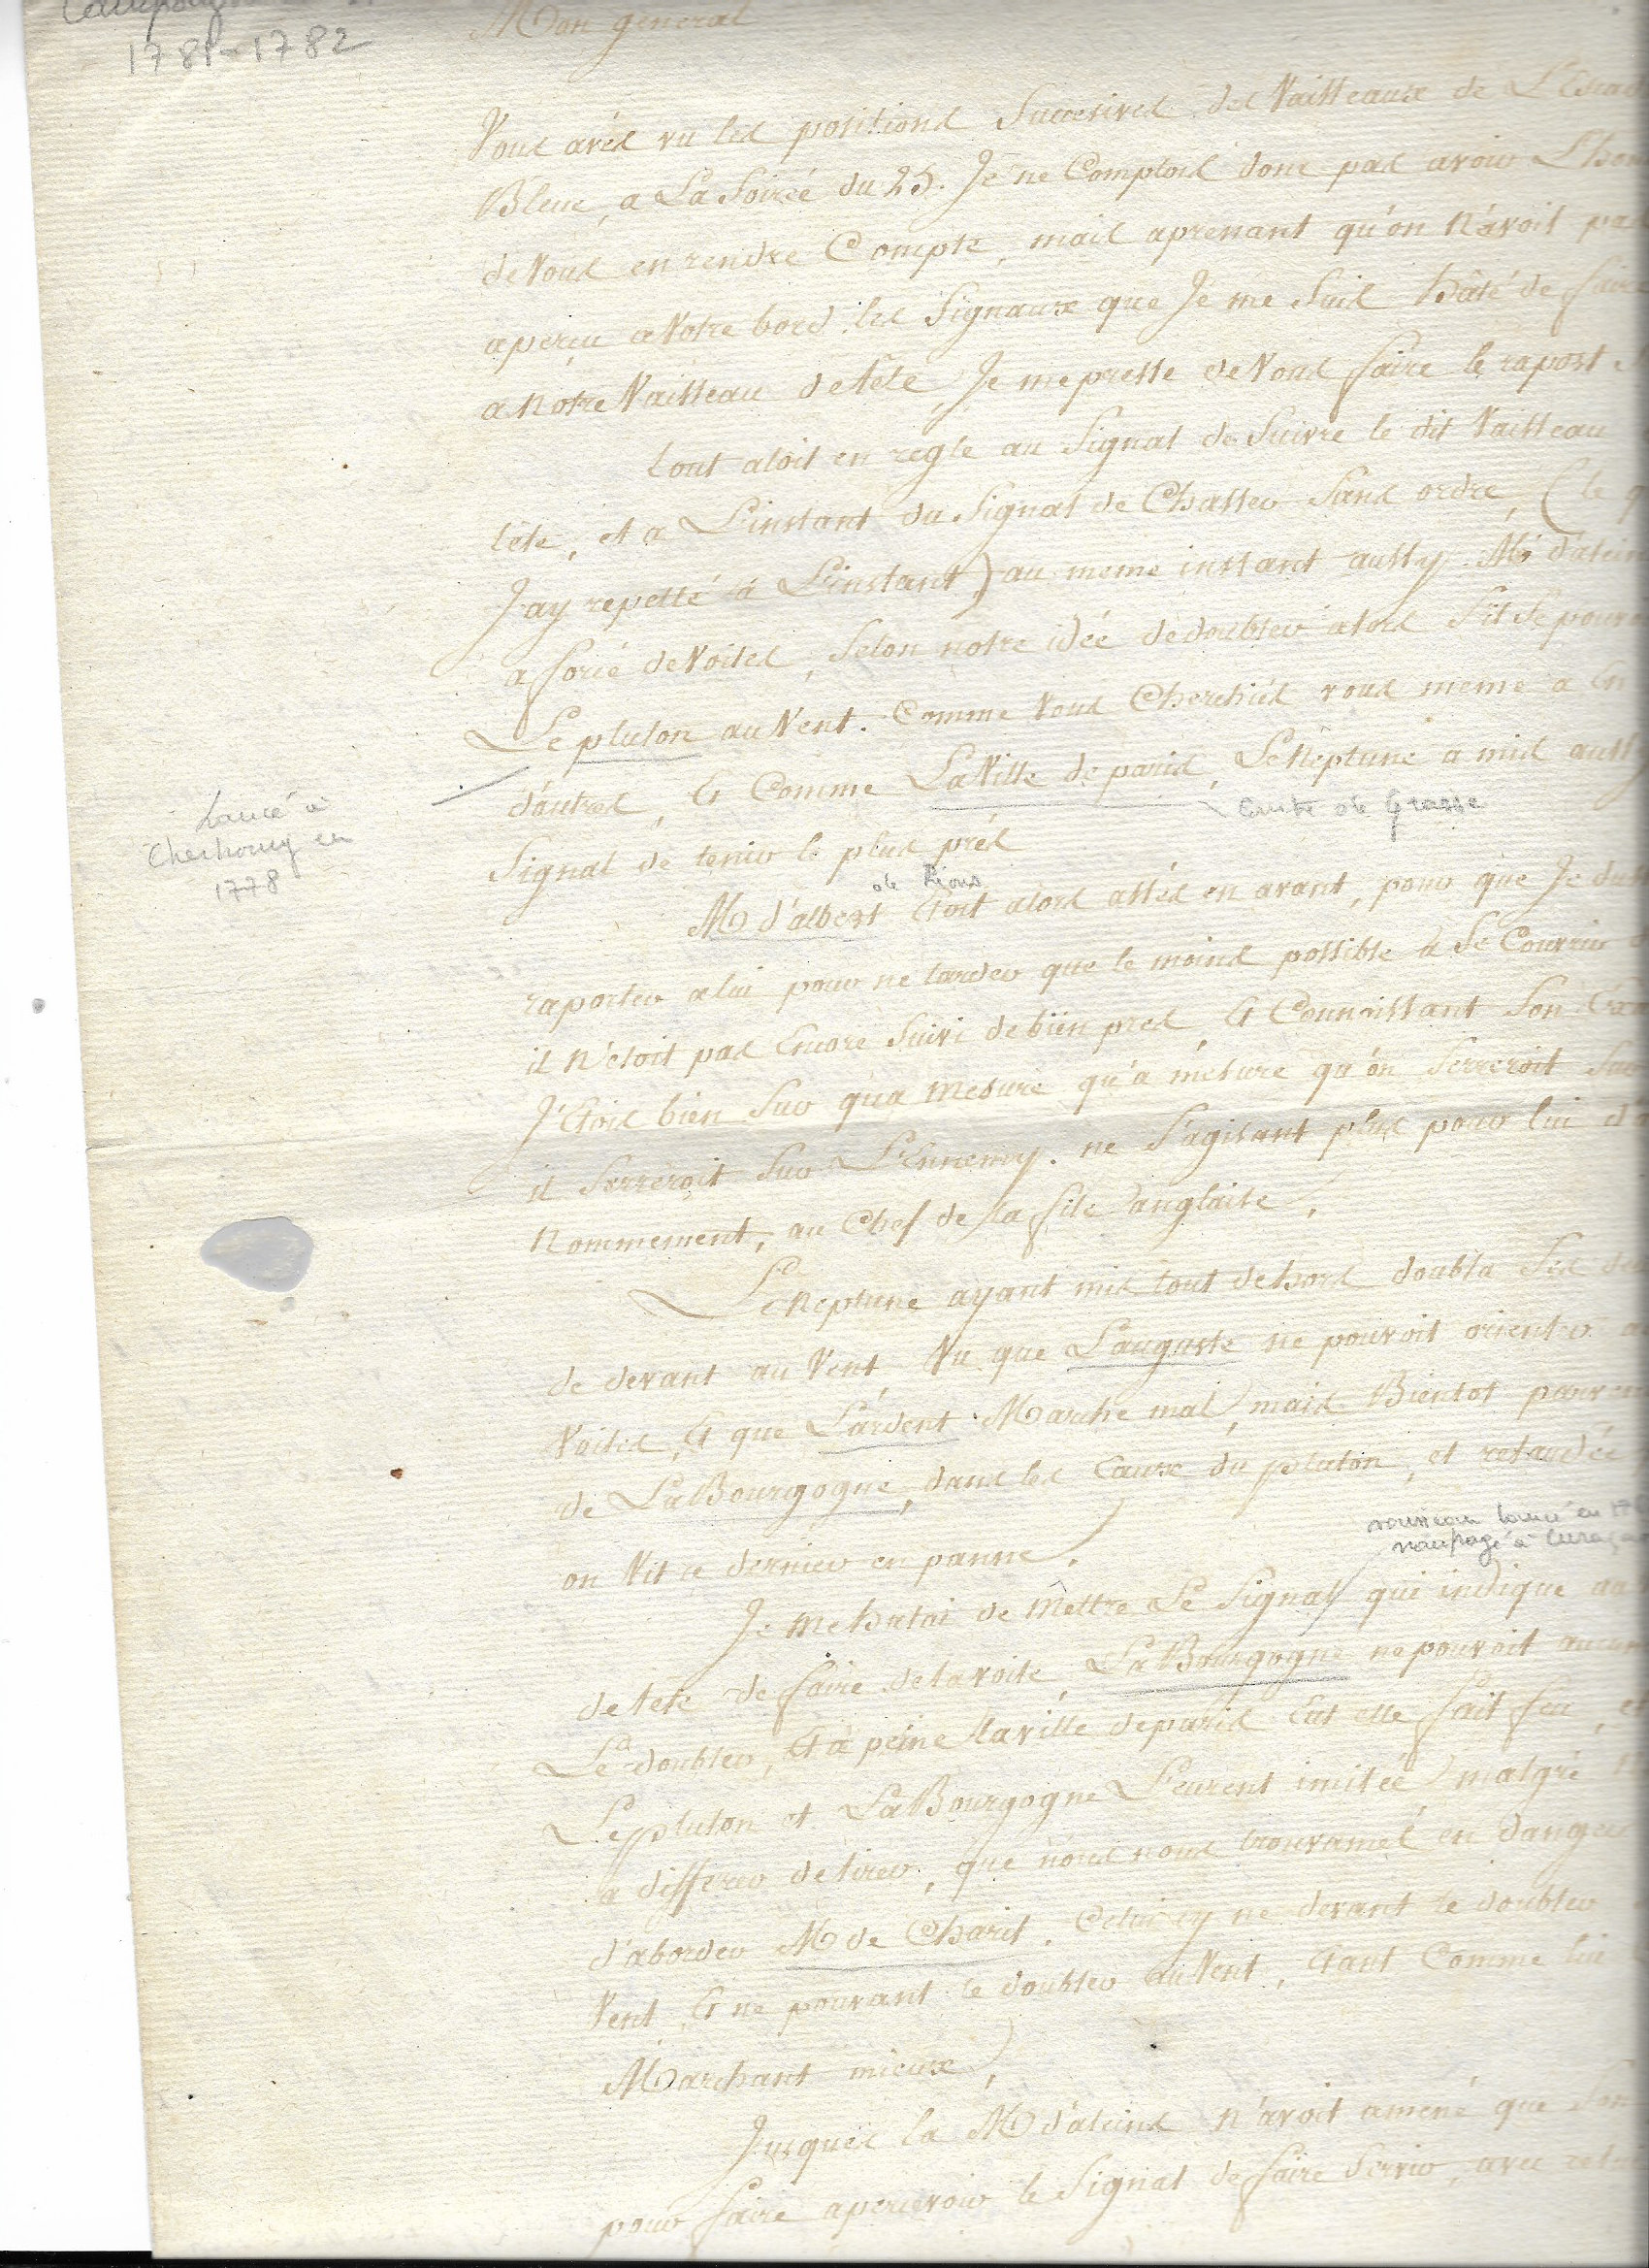 1781-1782
Mon général
Vous avés vu les positions Succesives des Vaisseaux de L'Esca
Bleue, a La Soireé du 25. Je ne Comptois donc pas avoir L'hon
de Vous en rendre Compte, mais aprenant qu'on n'avoit pa
aperçu a Votre bord les Signaux que Je me Suis hâté de faire
a Notre Vaisseau de tête, Je me presse de Vous faire le raport
tout aloit en regle au Signal de Suivre le dit Vaisseau
tête, et a L'instant du Signal de Chasser Sans ordre, (le q
J'ay repetté à L'instant) au meme instant aussy. Mr d'alein
a forcé de Voiles, Selon notre idée de doubler alors S'il Se pouvo
Le pluton au Vent. Comme Vous Cherchiés vous meme a En
d'autres, Et Comme La Ville de paris, Le Neptune a mis aussy
Comte de Grasse
Lancé à
Cherbourg en
1778
Signal de tenir le plus prés
de Rions
M d'albert Etoit alors assés en avant, pour que Je dus
raporter a lui pour ne tarder que le moins possible a Se Couvrir
il n'etoit pas Encore Suivi de bien pres, Et Connaissant Son
J'Etois bien Sur qua mesure qu'a mesure qu'on Serreroit Sur
il Serreroit Sur L'Ennemy. ne S'agisant plus pour lui d'
Nommement, au Chef de la file anglaise.
Le Neptune ayant mis tout dehors doubla Ses de
de devant au Vent Vu que L'auguste ne pouvoit orienter
Voiles, Et que L'ardent Marche mal, mais Bientot parven
de La Bourgogne, dans les Eaux du pluton, et retardée
on Vit ce dernier en panne.
vaisseau lancé en 17
naufragé à Curaçao
Je me hatai de mettre Le Signal qui indique au
de tête de faire de la voile, La Bourgogne ne pouvoit aucun
Le doubler, Et a peine la ville de paris Eut elle fait feu, et
Le pluton et La Bourgogne L'eurent imitée, malgré
a differer de tirer, que nous nous trouvames en danger
d'aborder M de Charit. Celui cy ne devant le doubler
Vent, Et ne pouvant le doubler au Vent, Etant Comme lui
Marchant mieux,
Jusques la M d'aleins n'avoit amené que Son
pour faire apercevoir le Signal de faire Servir, avec